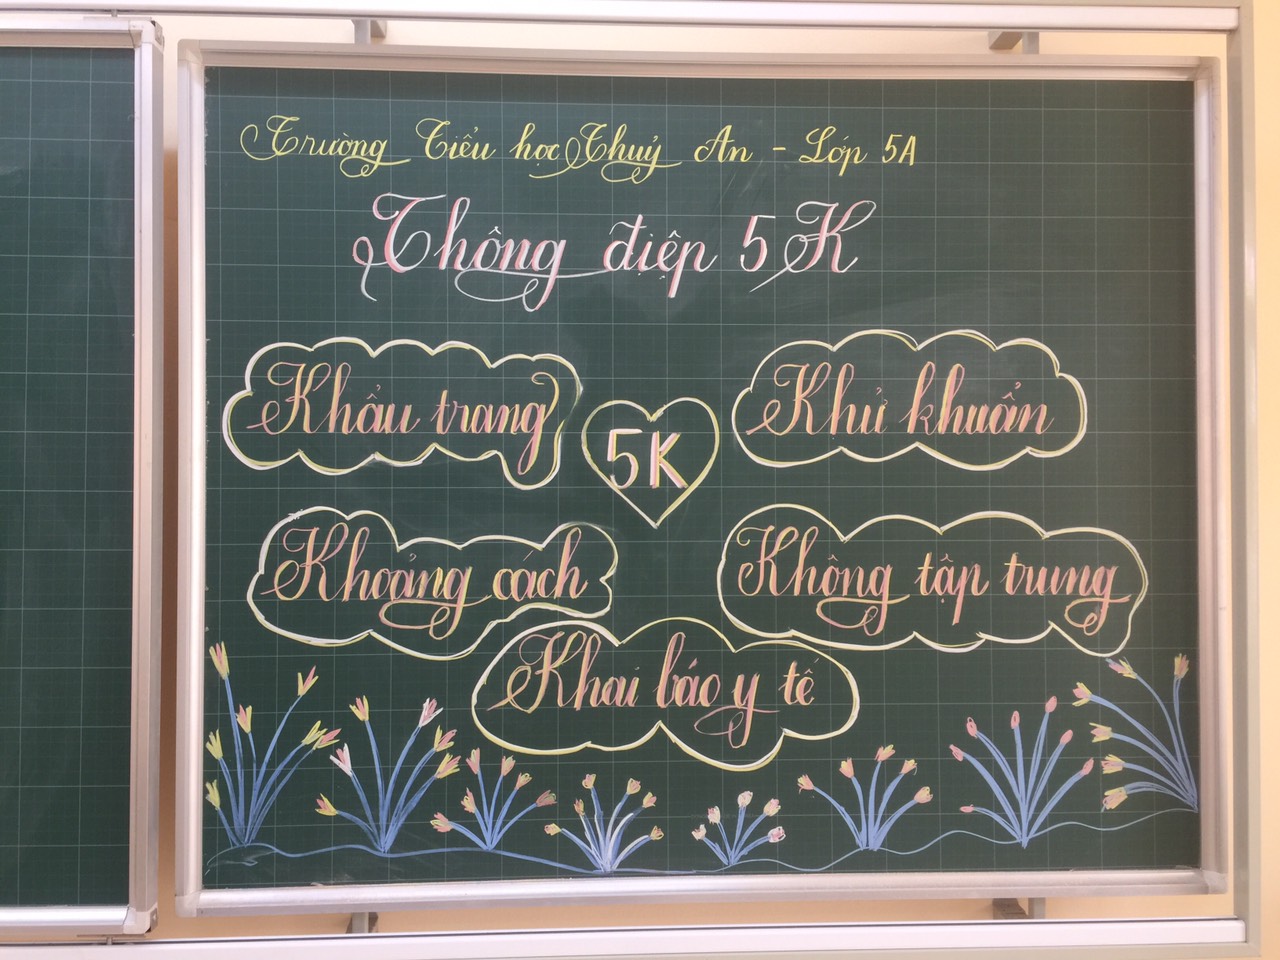 Trường Tiểu học Thuỷ An - Lớp 5A
Thông điệp 5K
Khẩu trang
5K
Khử khuẩn
Khoảng cách
Không tập trung
Khai báo y tế